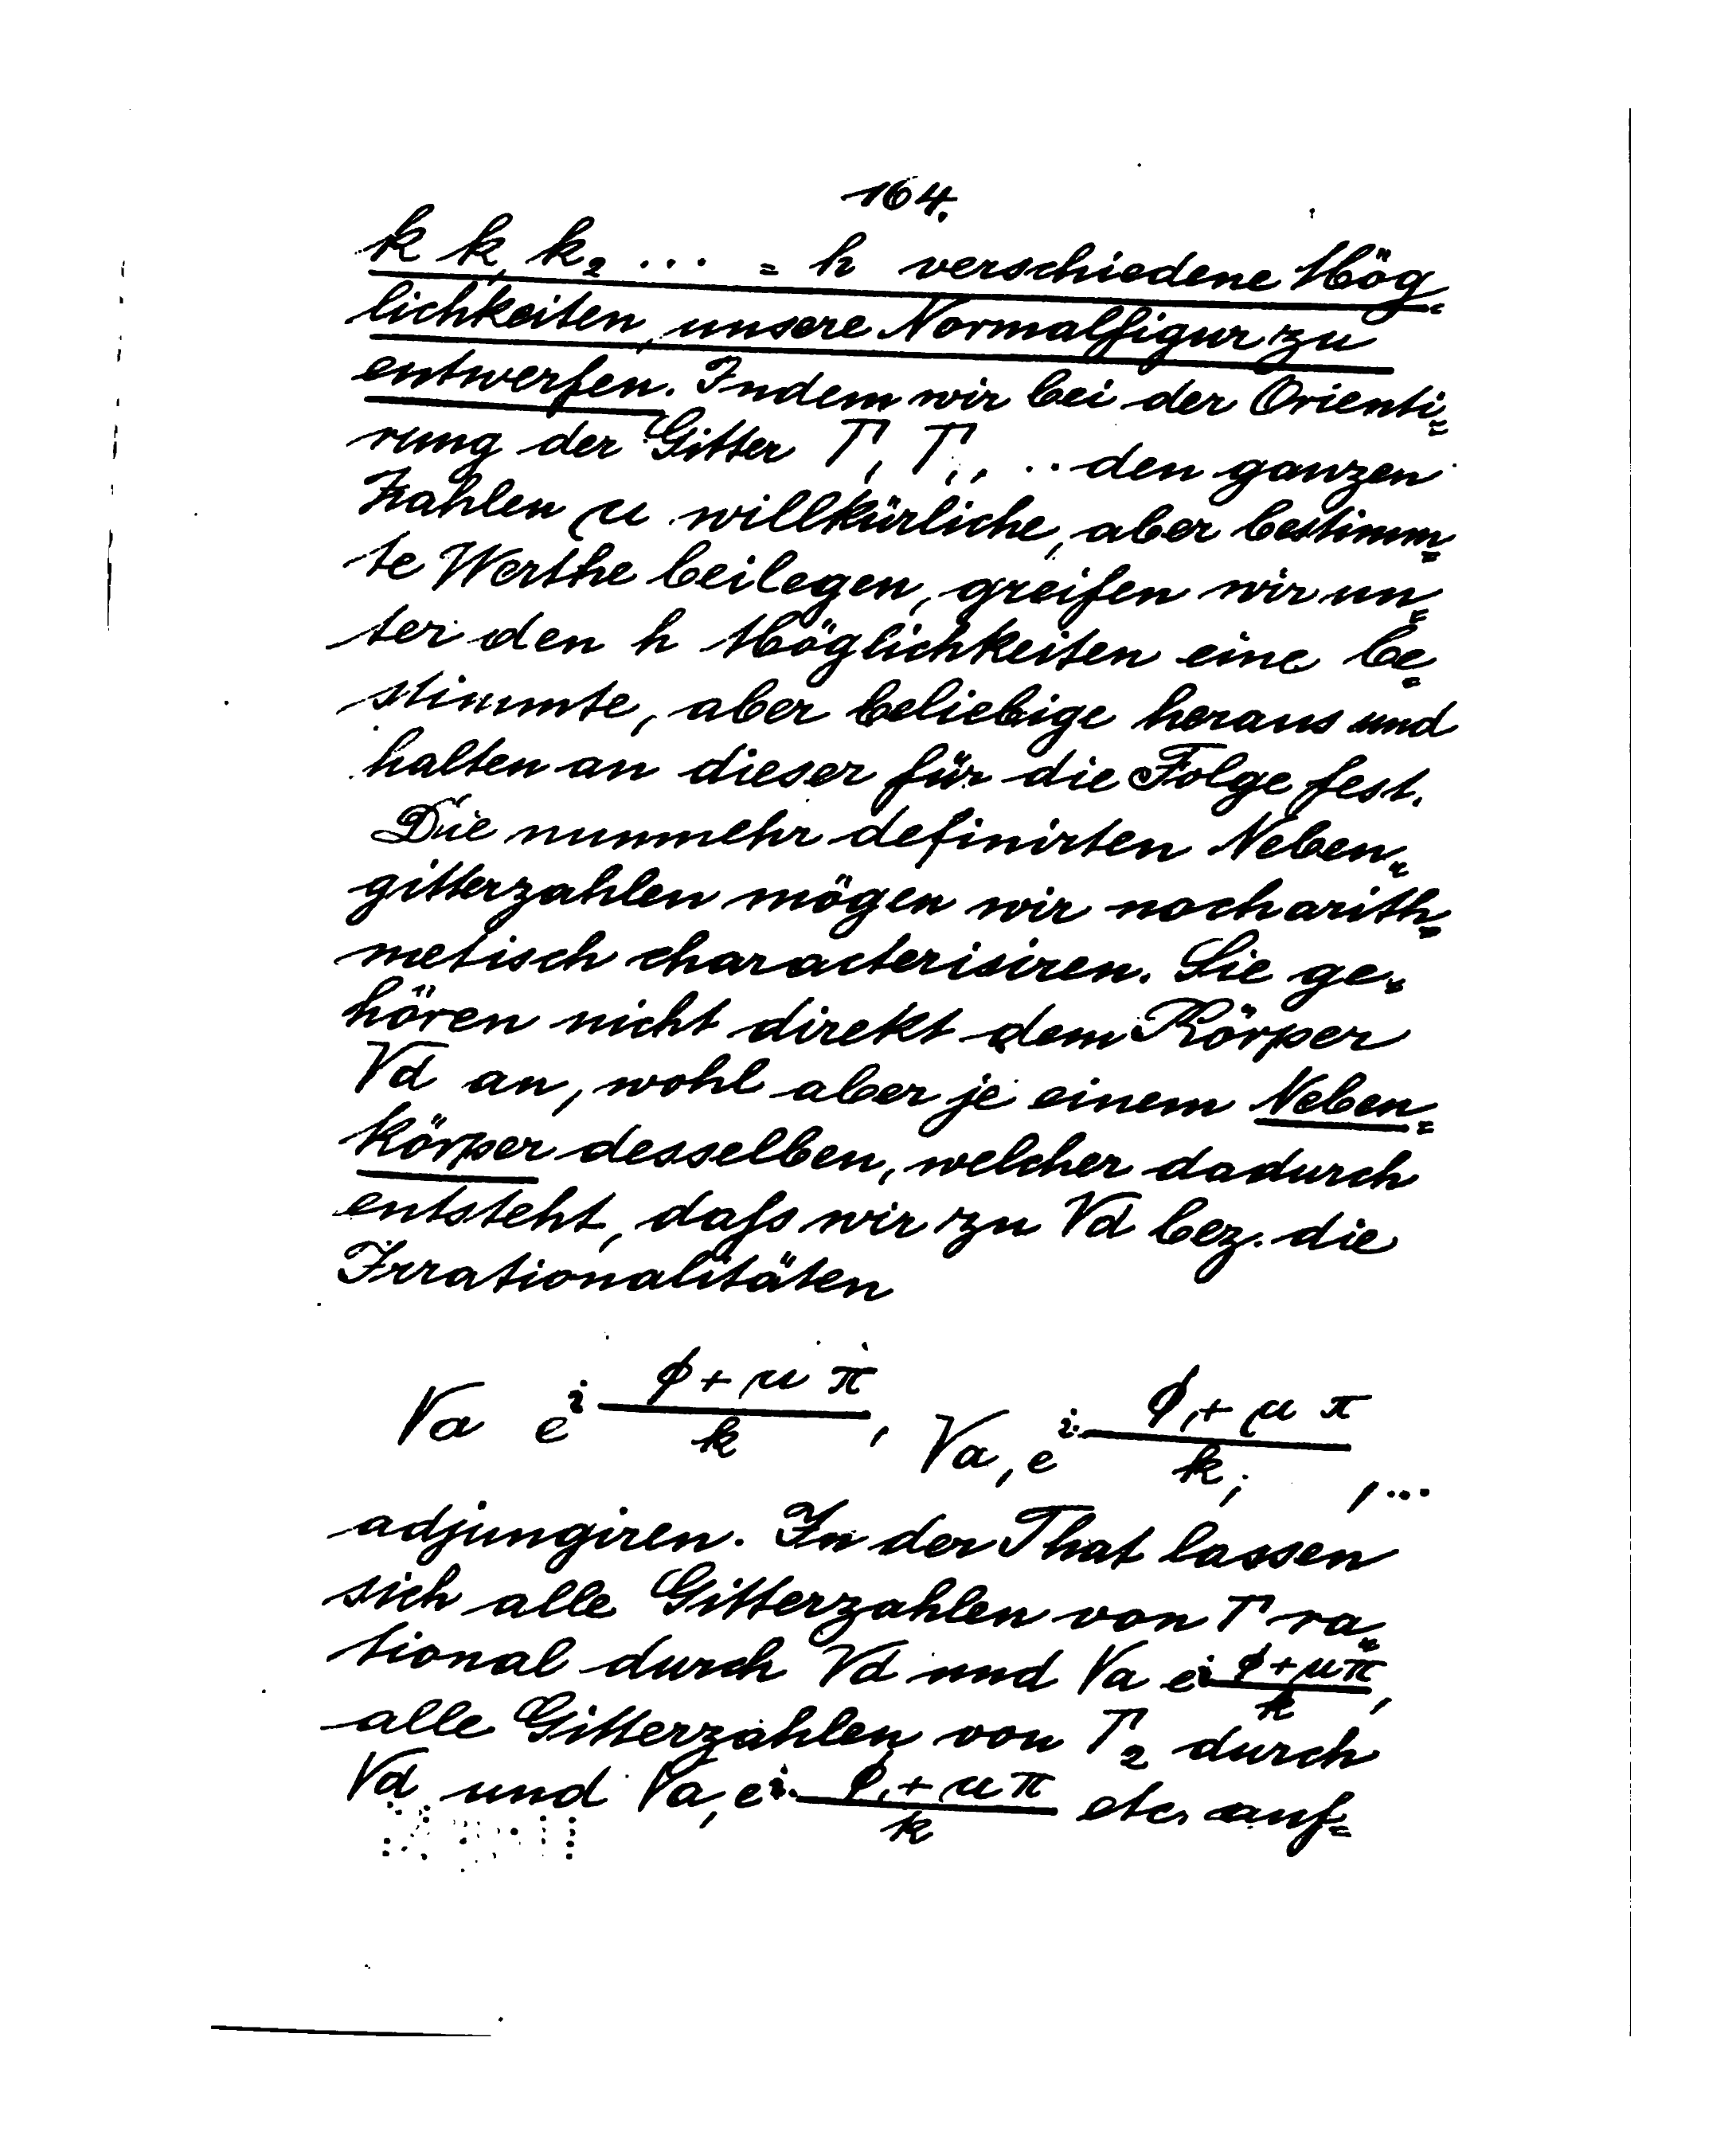 164.
k k, k₂ ... = h verschiedene Mög-
lichkeiten, unsere Normalfigur zu
entwerfen. Indem wir bei der Orienti=
rung der Gitter Γ, Γ,, ... den ganzen
Zahlen μ willkürliche, aber bestimm=
te Werthe beilegen, greifen wir un=
ter den h Möglichkeiten eine be=
stimmte, aber beliebige heraus und
halten an dieser für die Folge fest.
Die nunmehr definirten Neben=
gitterzahlen mögen wir noch arith=
metisch characterisiren. Sie ge=
hören nicht direkt dem Körper
√d an, wohl aber je einem Neben=
körper desselben, welcher dadurch
entsteht, dafs wir zu √d bez. die
Irrationalitäten
√a e^{i (φ + μ π)/k}, √a, e^{i (φ, + μ π)/k,}, ...
adjungiren. In der That lassen
sich alle Gitterzahlen von Γ ra=
tional durch √d und √a e^{i (φ + μπ)/k},
alle Gitterzahlen von Γ₂ durch
√d und √a, e^{i (φ, + μ π)/k} etc. auf=